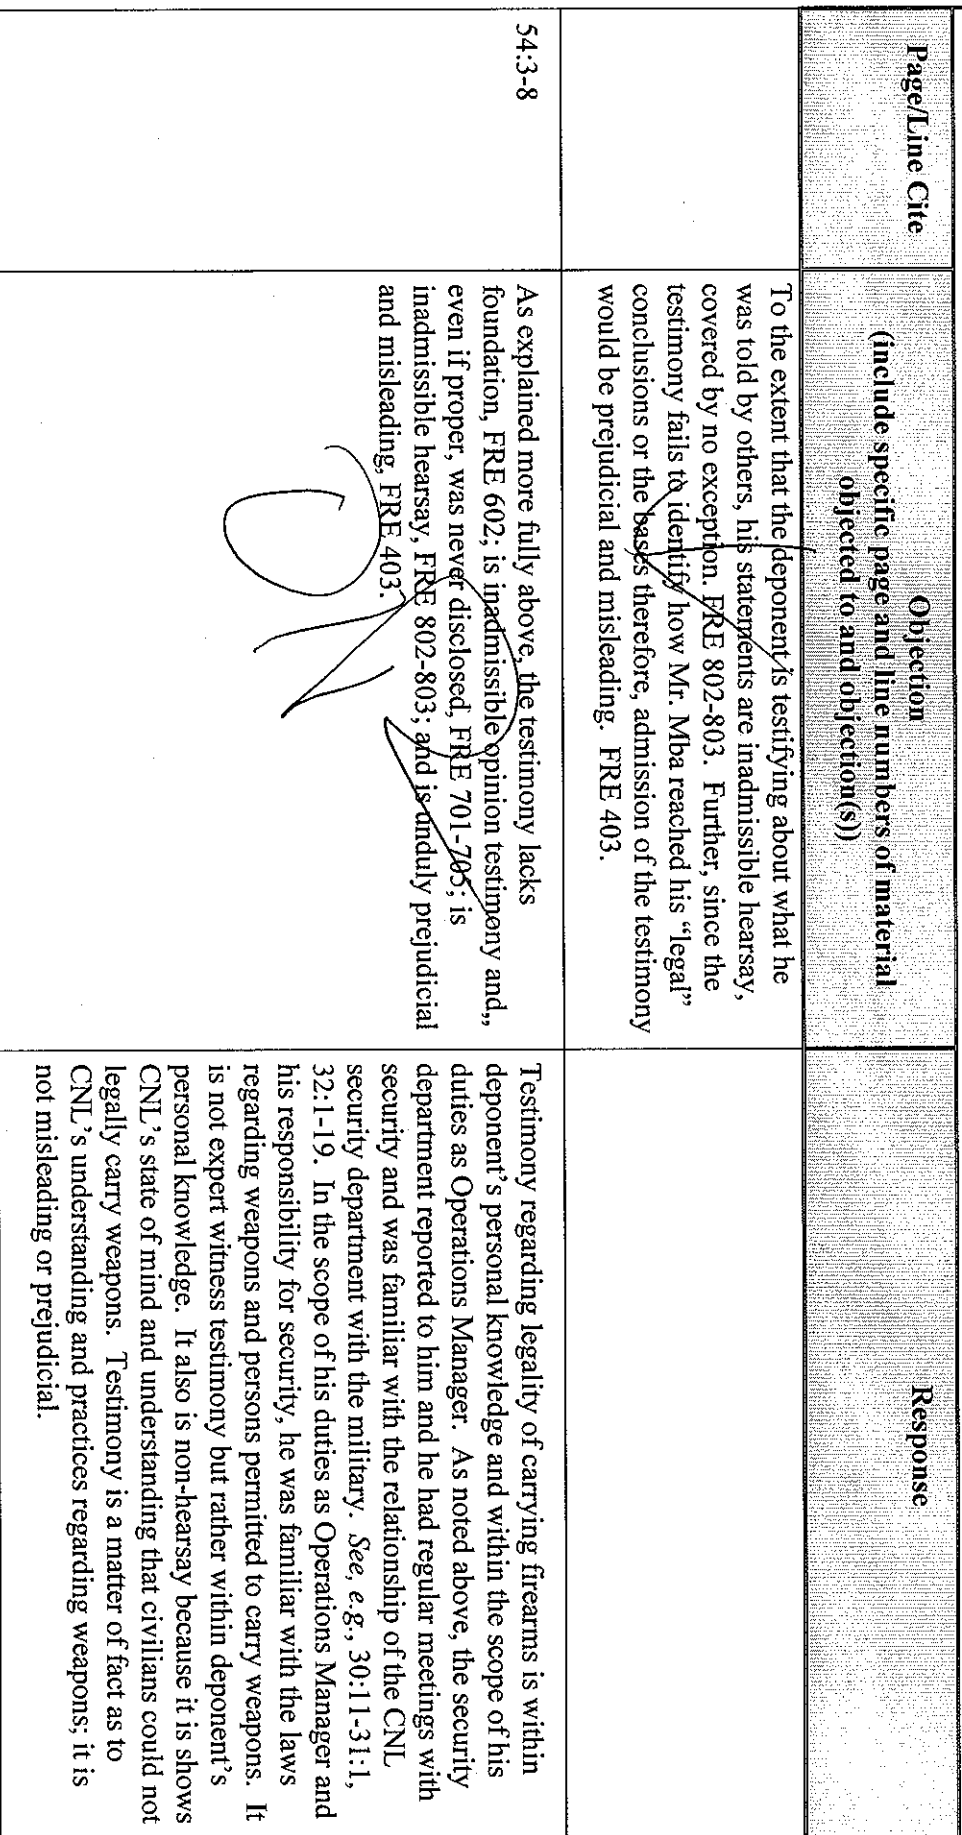 Page/Line Cite
Objection
(include specific page and line numbers of material
objected to and objection(s))
Response
To the extent that the deponent is testifying about what he
was told by others, his statements are inadmissible hearsay,
covered by no exception. FRE 802-803. Further, since the
testimony fails to identify how Mr. Mba reached his “legal”
conclusions or the bases therefore, admission of the testimony
would be prejudicial and misleading. FRE 403.
54:3-8
As explained more fully above, the testimony lacks
foundation, FRE 602; is inadmissible opinion testimony and,,
even if proper, was never disclosed, FRE 701-705; is
inadmissible hearsay, FRE 802-803; and is unduly prejudicial
and misleading, FRE 403.
Testimony regarding legality of carrying firearms is within
deponent’s personal knowledge and within the scope of his
duties as Operations Manager. As noted above, the security
department reported to him and he had regular meetings with
security and was familiar with the relationship of the CNL
security department with the military. See, e.g., 30:11-31:1,
32:1-19. In the scope of his duties as Operations Manager and
his responsibility for security, he was familiar with the laws
regarding weapons and persons permitted to carry weapons. It
is not expert witness testimony but rather within deponent’s
personal knowledge. It also is non-hearsay because it is shows
CNL’s state of mind and understanding that civilians could not
legally carry weapons. Testimony is a matter of fact as to
CNL’s understanding and practices regarding weapons; it is
not misleading or prejudicial.